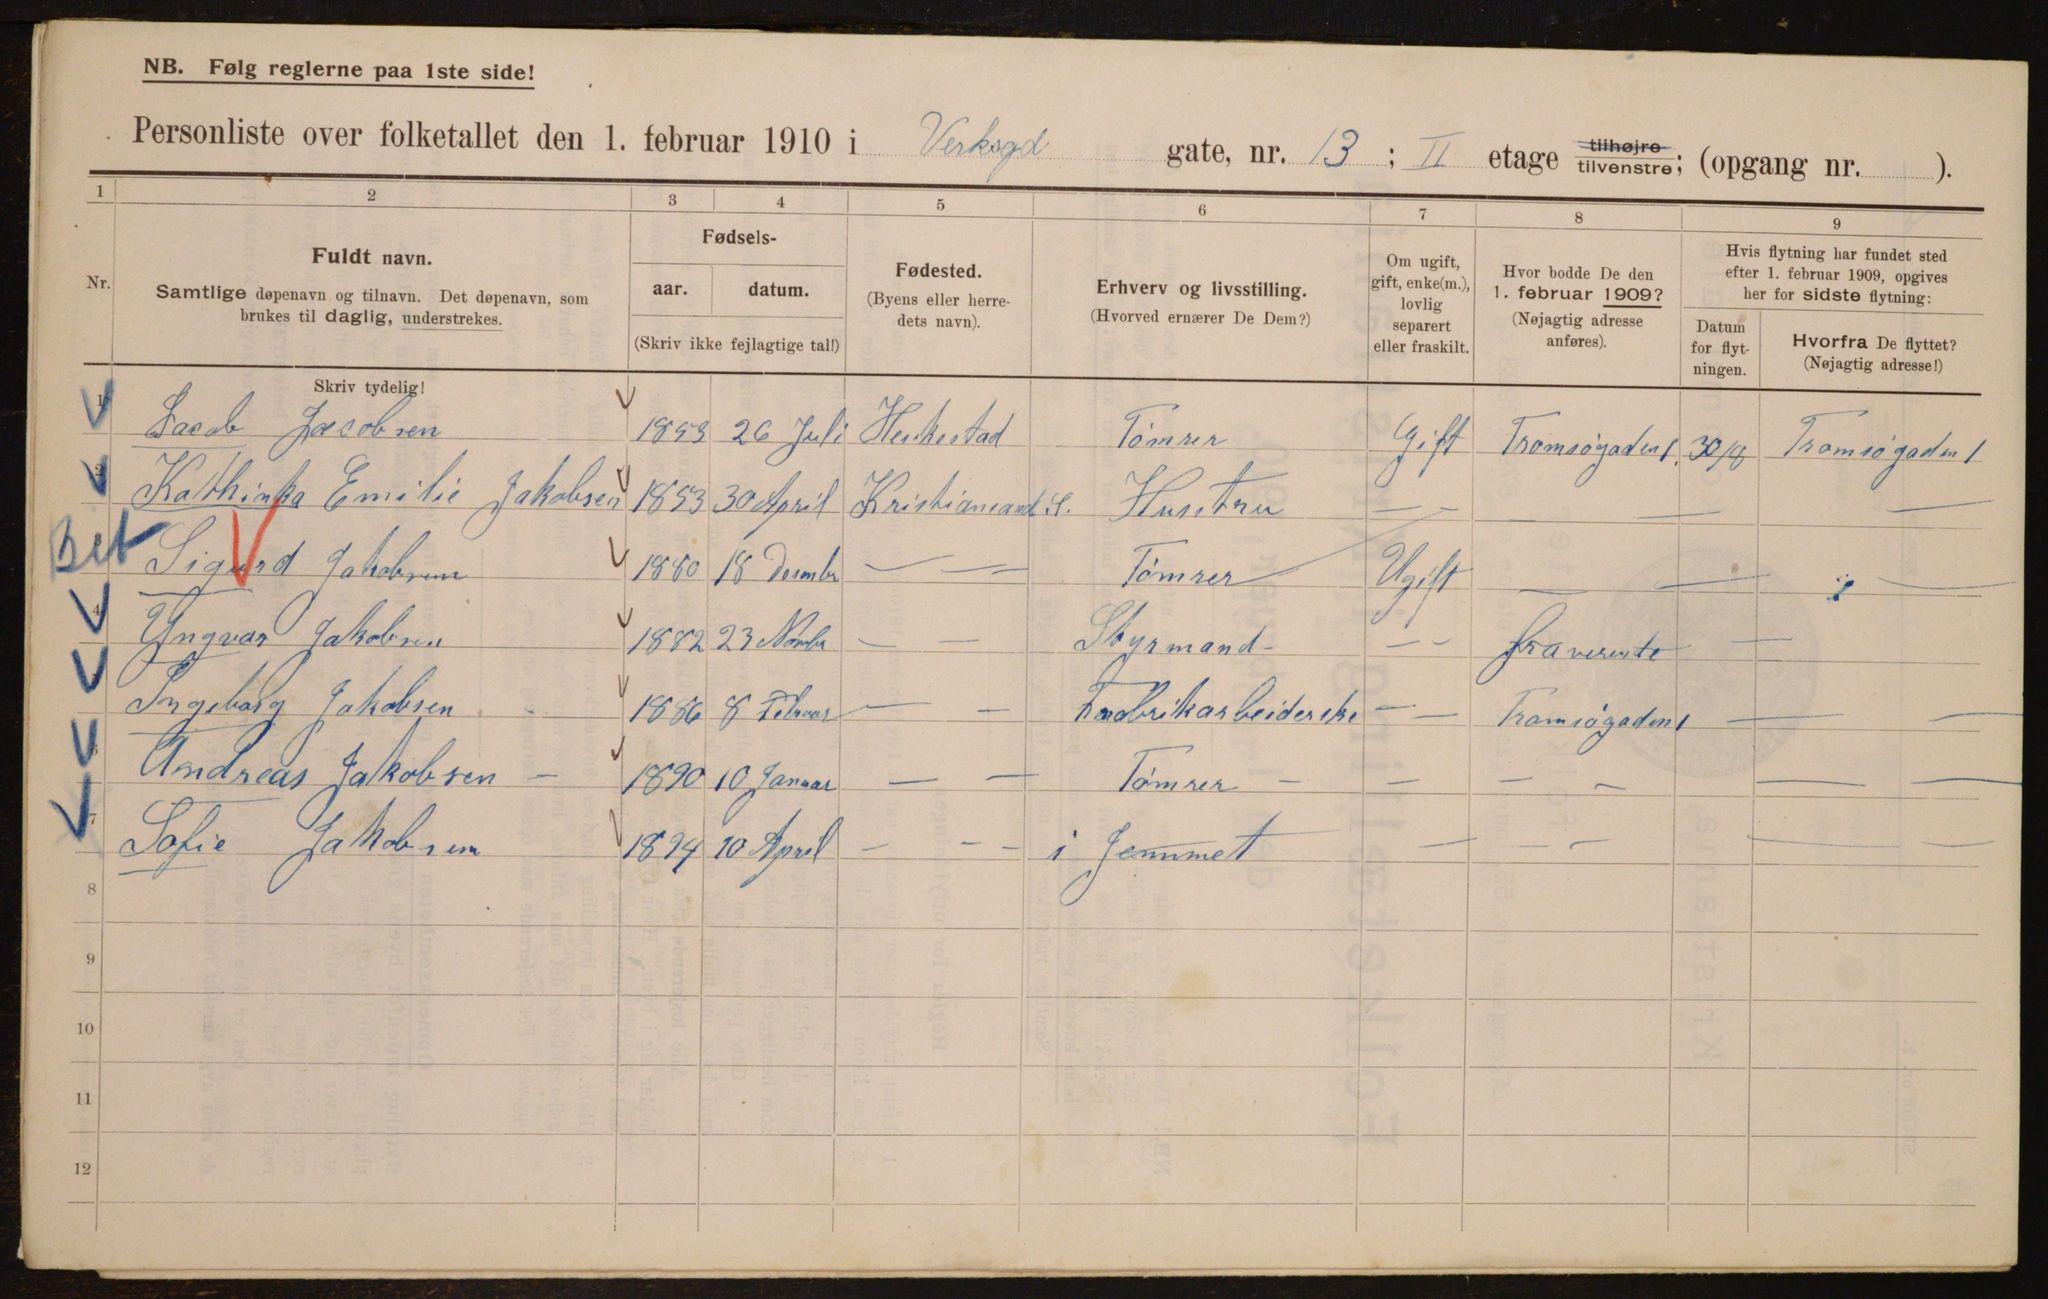 NB. Følg reglerne paa 1ste side!
Personliste over folketallet den 1. februar 1910 i Verksgd gate, nr. 13 ; II etage tilhøjre tilvenstre; (opgang nr. ).
1 2 3 4 5 6 7 8 9
Nr.
Fuldt navn.
Samtlige døpenavn og tilnavn. Det døpenavn, som
brukes til daglig, understrekes.
Skriv tydelig!
Fødsels-
aar. datum.
(Skriv ikke fejlagtige tal!)
Fødested.
(Byens eller herre-
dets navn).
Erhverv og livsstilling.
(Hvorved ernærer De Dem?)
Om ugift,
gift, enke(m.),
lovlig
separert
eller fraskilt.
Hvor bodde De den
1. februar 1909?
(Nøjagtig adresse
anføres).
Hvis flytning har fundet sted
efter 1. februar 1909, opgives
her for sidste flytning:
Datum
for flyt-
ningen.
Hvorfra De flyttet?
(Nøjagtig adresse!)
1 Jacob Jacobsen 1853 26 Juli Heskestad Tømrer Gift Tromsøgaden 1. 30/8 Tromsøgaden 1
2 Kathinka Emilie Jakobsen 1853 30 April Kristiansand S. Hustru — — — — —
Bet Sigurd Jakobsen 1880 18 Desember — — — Tømrer Ugift — — — —
4 Yngvar Jakobsen 1882 23 Novmbr — — Styrmand - — - fraverende —
Ingeborg Jakobsen 1886 8 Februar — — Fabrikarbeiderske — — Tromsøgaden 1 — —
6 Andreas Jakobsen — 1890 10 Januar — — Tømrer — — — — — — —
7 Sofie Jakobsen 1894 10 April — — — i Jemmet — — — — —
8
9
10
11
12